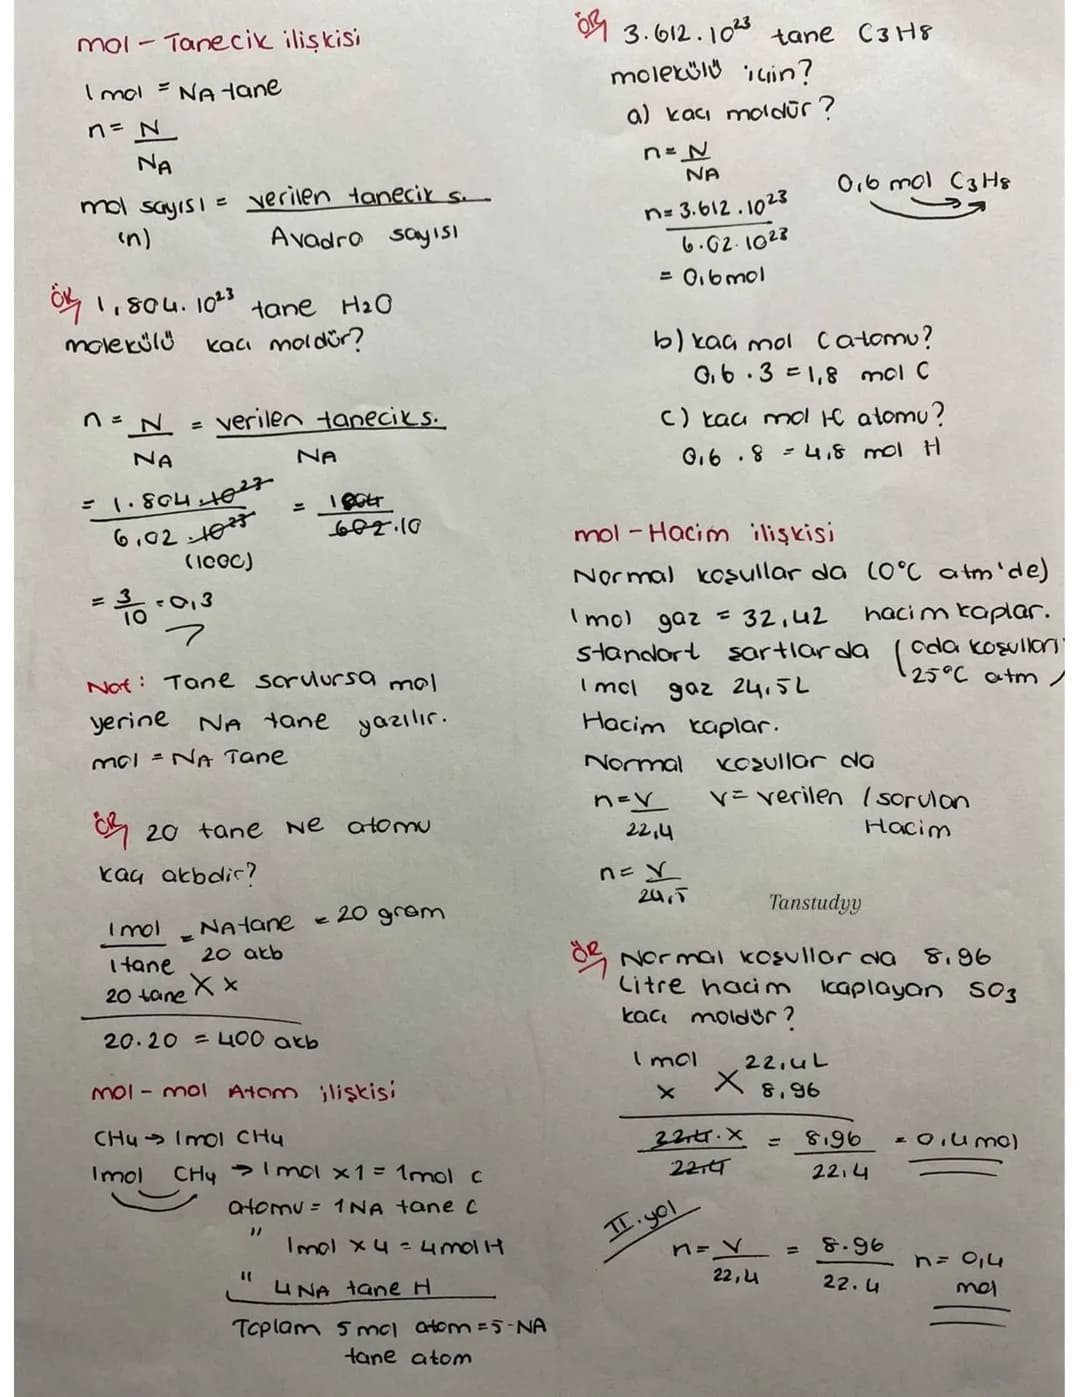 mol - Tanecik ilişkisi
1 mol = NA tane
n = N
NA
mol sayısı = verilen tanecik s.
(n) Avadro sayısı
ÖR 1,804.10²³ tane H₂O
molekülü kaç moldür?
n = N = verilen tanecik s.
NA NA
= 1.804.10²³ = 1804
6,02.10²³ 602.10
(1000)
= 3 = 0,3
10
Not: Tane sorulursa mol
yerine NA tane yazılır.
mol = NA Tane
ÖR 20 tane Ne atomu
kaç akbdir?
1 mol = NA tane = 20 gram
1 tane 20 akb
20 tane X x
20.20 = 400 akb
mol - mol Atom ilişkisi
CH₄ → 1mol CH₄
1mol CH₄ → 1mol x1 = 1mol C
atomu = 1NA tane C
" 1mol x 4 = 4mol H
" 4NA tane H
Toplam 5 mol atom = 5-NA
tane atom
ÖR 3.612.10²³ tane C₃H₈
molekülü için?
a) kaç moldür?
n = N
NA
n = 3.612.10²³
6.02.10²³
= 0,6mol
0,6 mol C₃H₈
b) kaç mol C atomu?
0,6 . 3 = 1,8 mol C
c) kaç mol H atomu?
0,6 . 8 = 4,8 mol H
mol - Hacim ilişkisi
Normal koşullar da (0°C atm'de)
1mol gaz = 32,42 hacim kaplar.
standart şartlar da (oda koşulları
1mol gaz 24,5L 25°C atm)
Hacim kaplar.
Normal koşullar da
n = V V = verilen / sorulan
22,4 Hacim
n = V
24,5
Tanstudyy
ÖR Normal koşullar da 8,96
Litre hacim kaplayan SO₃
kaç moldür?
1mol 22,4L
x X 8,96
22,4.X = 8,96 = 0,4mol
22,4 22,4
II.yol
n = V = 8.96 n = 0,4
22,4 22.4 mol